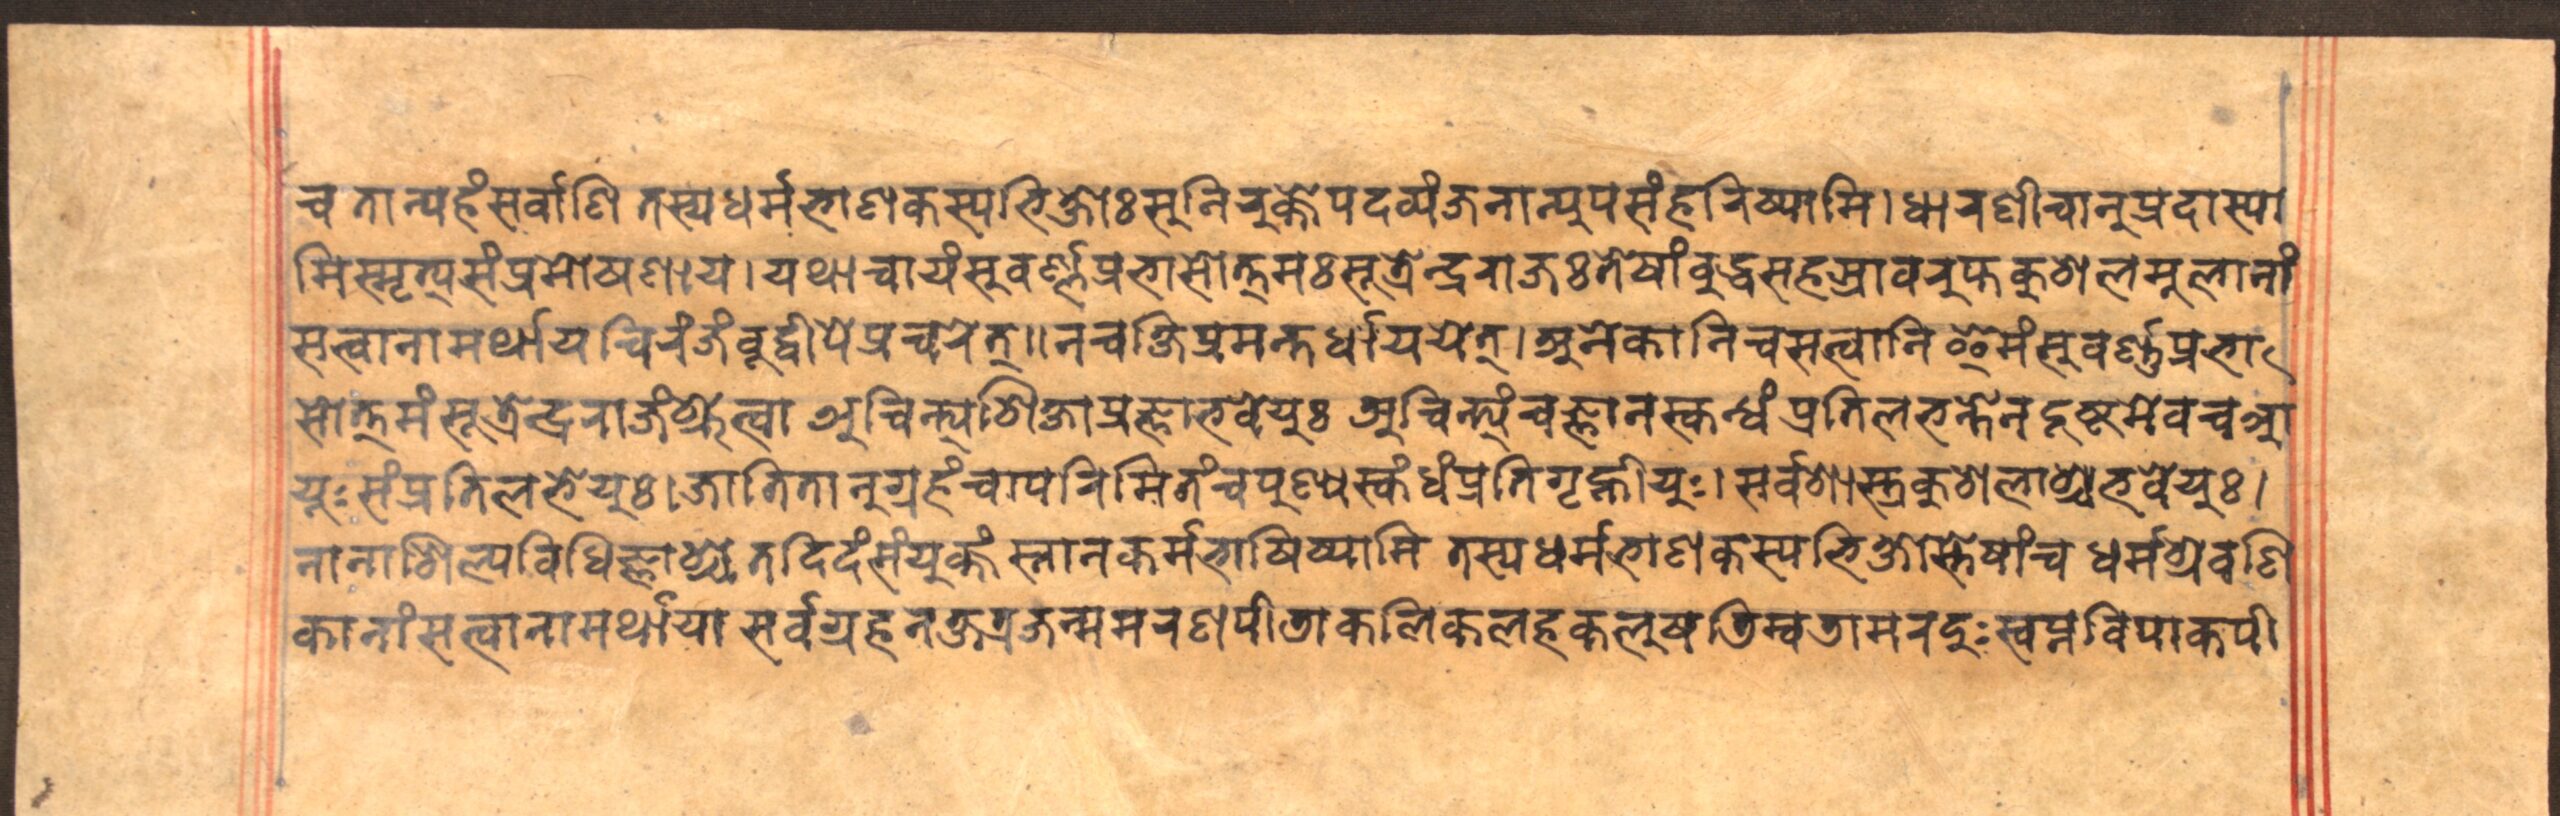 च तान्यहंसर्वाणि तस्यधर्मभाणकस्यभिक्षोःसुनिरुक्तेपदव्यंजनान्युपसंहरिष्यामि।धारणीचानुप्रदास्या
मिस्मृत्य्संप्रमोषणाय।यथाचायंसुवर्ण्णप्रभासोत्तमःसूत्रेन्द्रराजःतेषांवुद्धसहस्रावरुप्तकुशलमूलानां
सत्वानामर्थायचिरंजंवूद्वीपेप्रचरेत्॥नचक्षिप्रमन्तर्धाययेत्।अनेकानिचसत्वानि इमंसुवर्ण्णप्रभा
सोत्तमंसूत्रेन्द्रराजंश्रुत्वा अचिन्त्यशिक्षाप्रज्ञाभवेयुः अचिन्त्यंचज्ञानस्कन्धंप्रतिलभन्तेनदृष्टमेवचआ
युःसंप्रतिलभेयुः।जातितानुग्रहंचापरिमितंचपुण्यस्कंधंप्रतिगृह्णीयुः।सर्वशास्त्रकुशलाश्चभवेयुः।
नानाशिल्पविधिज्ञाश्च तदिदंसंयुक्तं स्नानकर्मभाषिष्यामि तस्यधर्मभाणकस्यभिक्षोस्तेषांच धर्मश्रवणि
कानांसत्वानामर्थाया सर्वग्रहनक्षत्रजन्ममरणपीडाकलिकलहकलुषडिम्वडामरदुःस्वप्नविपाकपी